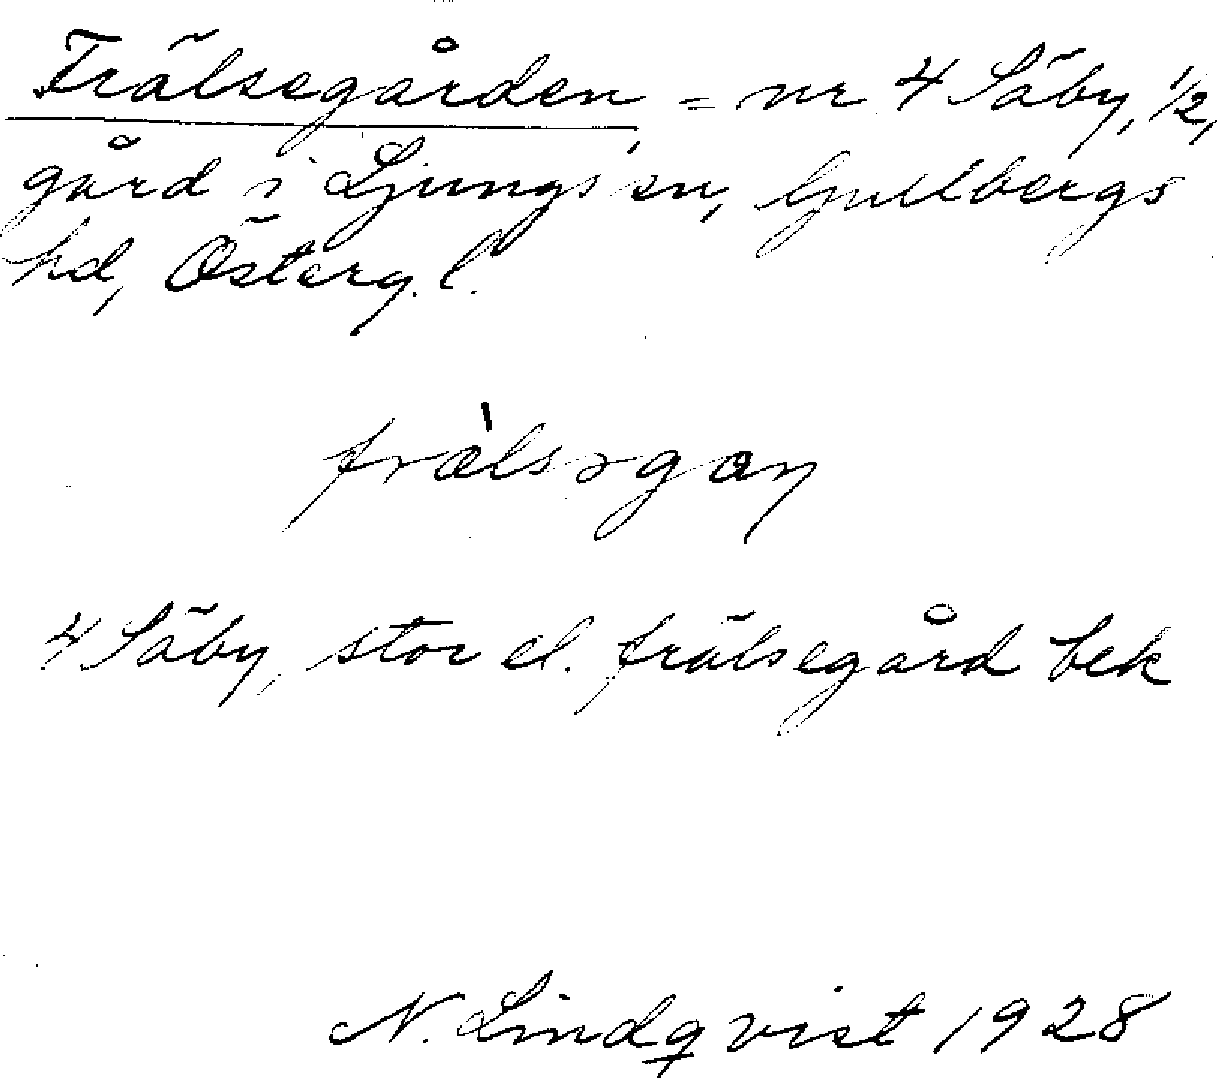 Frälsegården, = nr 4 Säby, 1/2,
gård i Ljungs sn, Gullbergs
hd, Österg. l.
frä̀lsəgaɳ
4 Säby, stor el. frälsegård bek
N. Lindqvist 1928